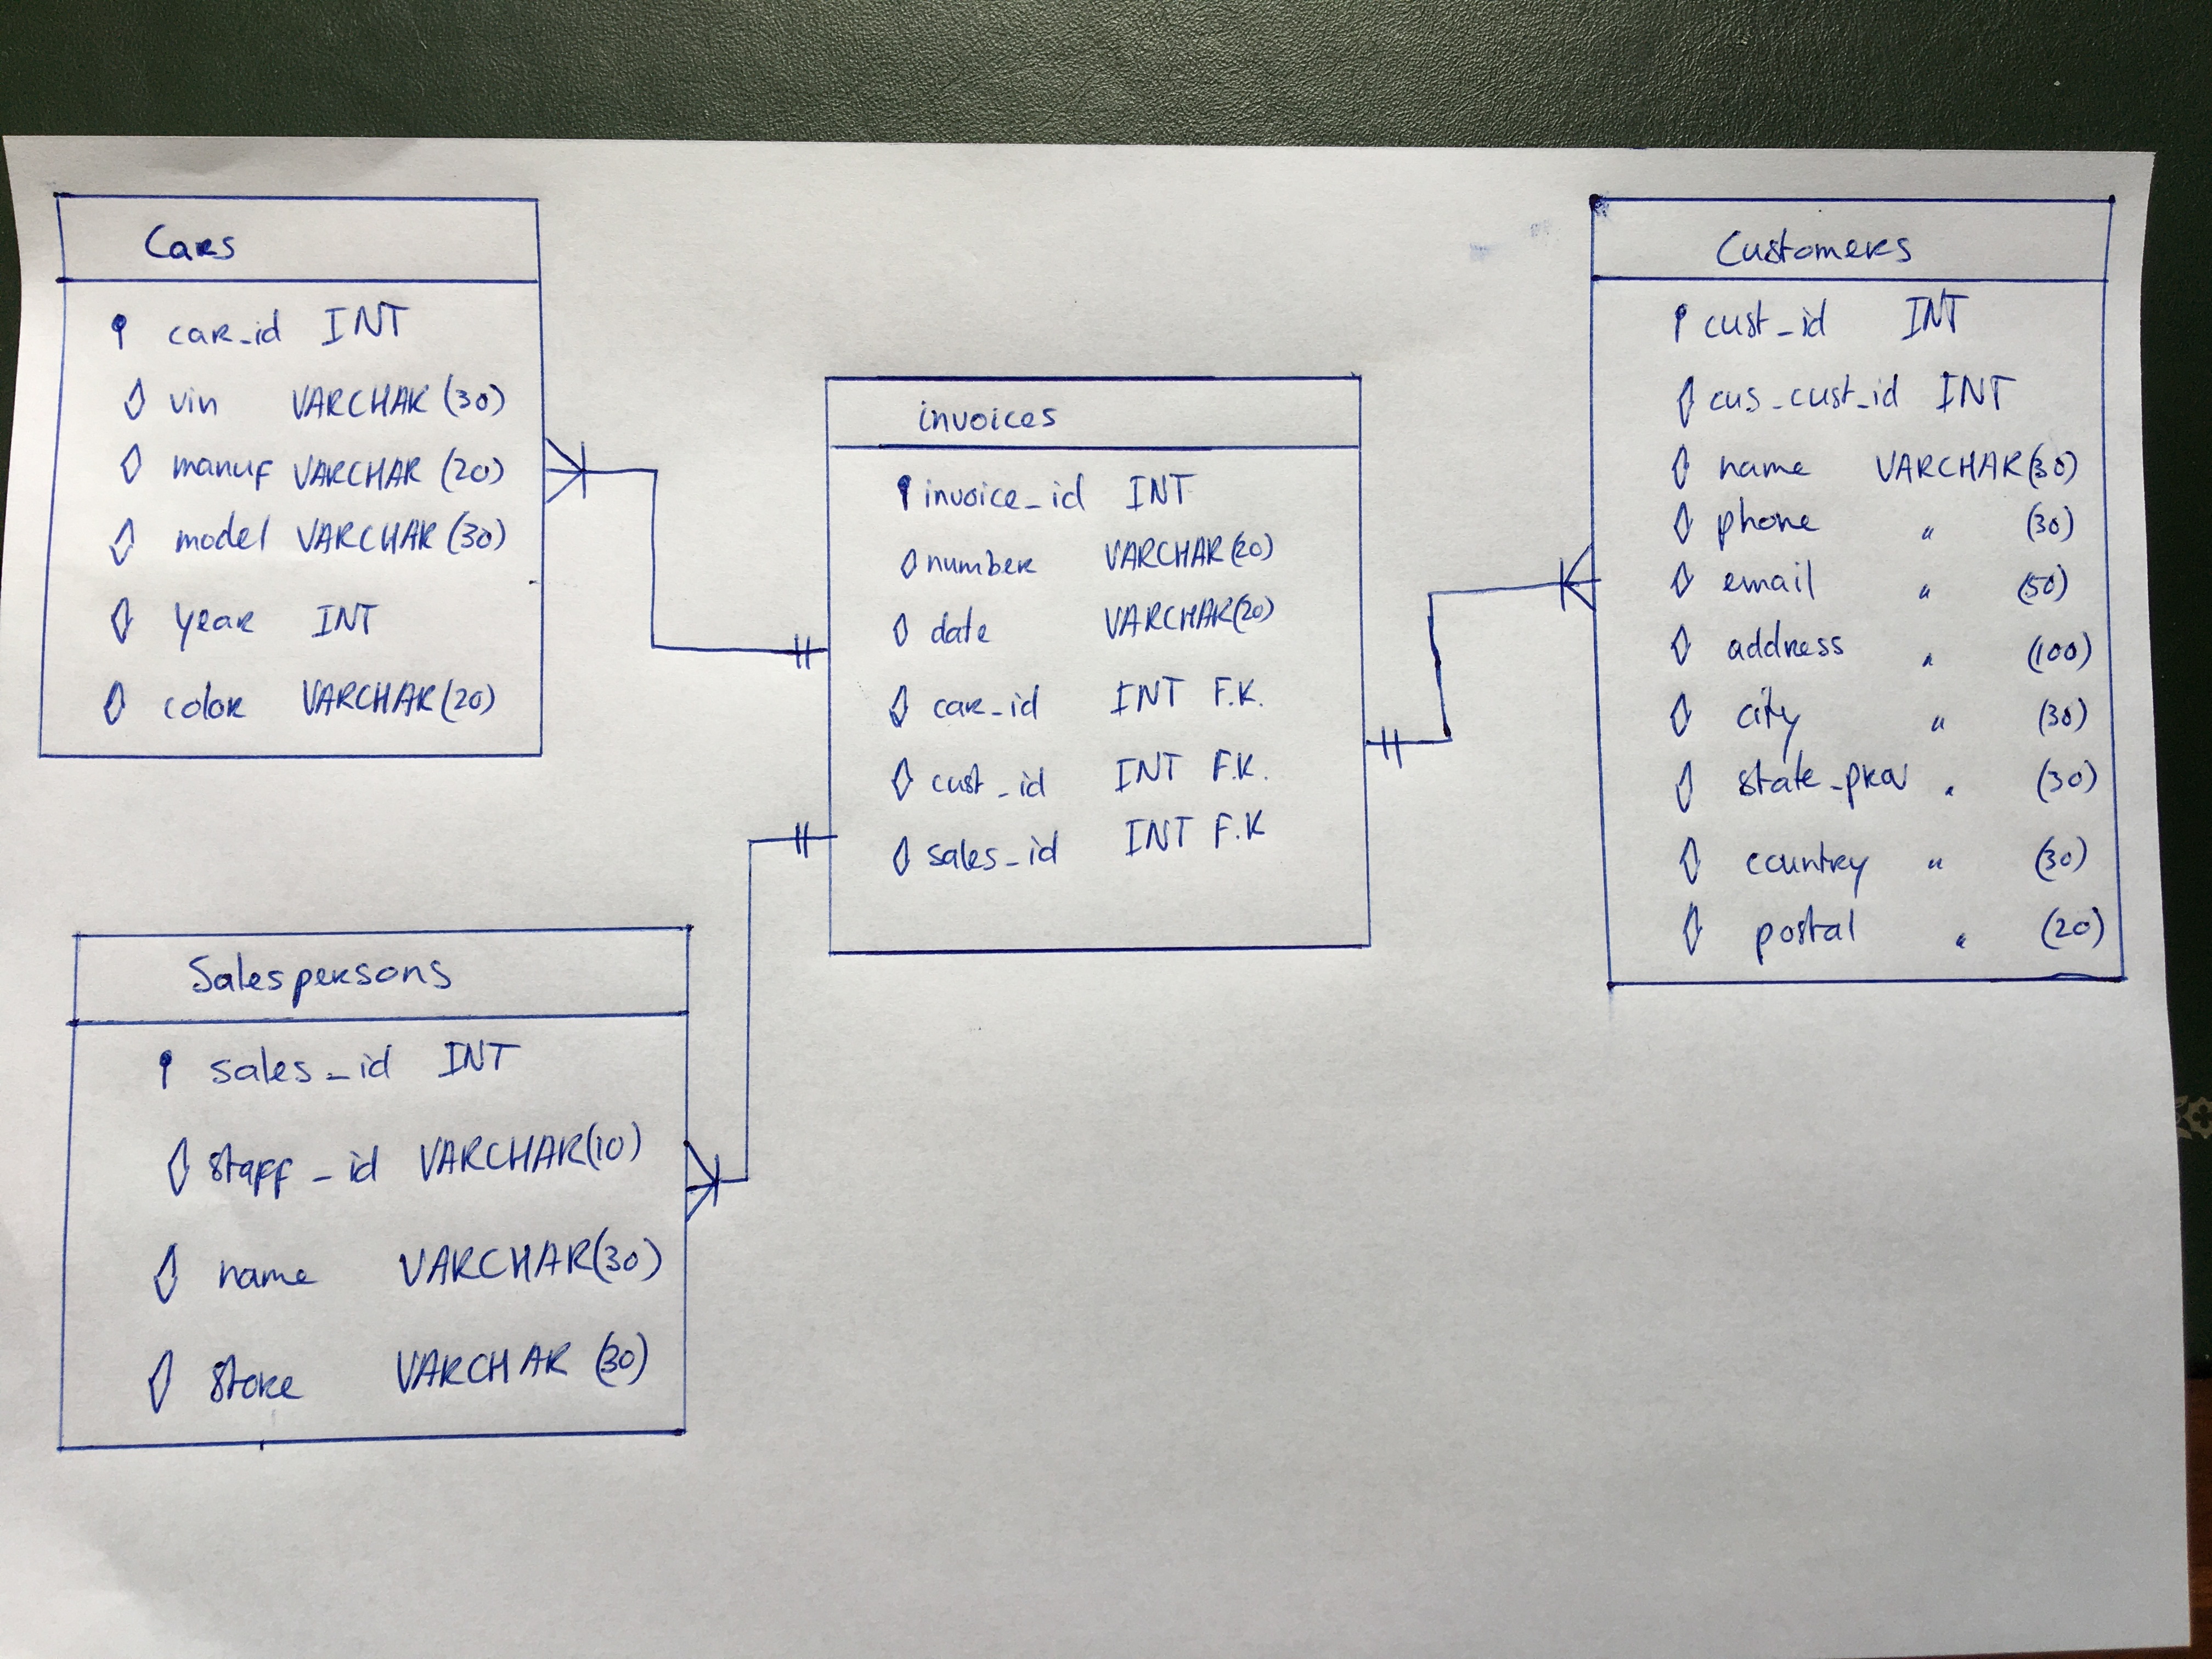 Cars
car_id INT
vin VARCHAR(30)
manuf VARCHAR(20)
model VARCHAR(30)
year INT
color VARCHAR(20)
Salespersons
sales_id INT
staff_id VARCHAR(10)
name VARCHAR(30)
store VARCHAR(30)
invoices
invoice_id INT
number VARCHAR(20)
date VARCHAR(20)
car_id INT F.K.
cust_id INT F.K.
sales_id INT F.K
Customers
cust_id INT
cus_cust_id INT
name VARCHAR(30)
phone " (30)
email " (50)
address " (100)
city " (30)
state_prov " (30)
country " (30)
postal " (20)